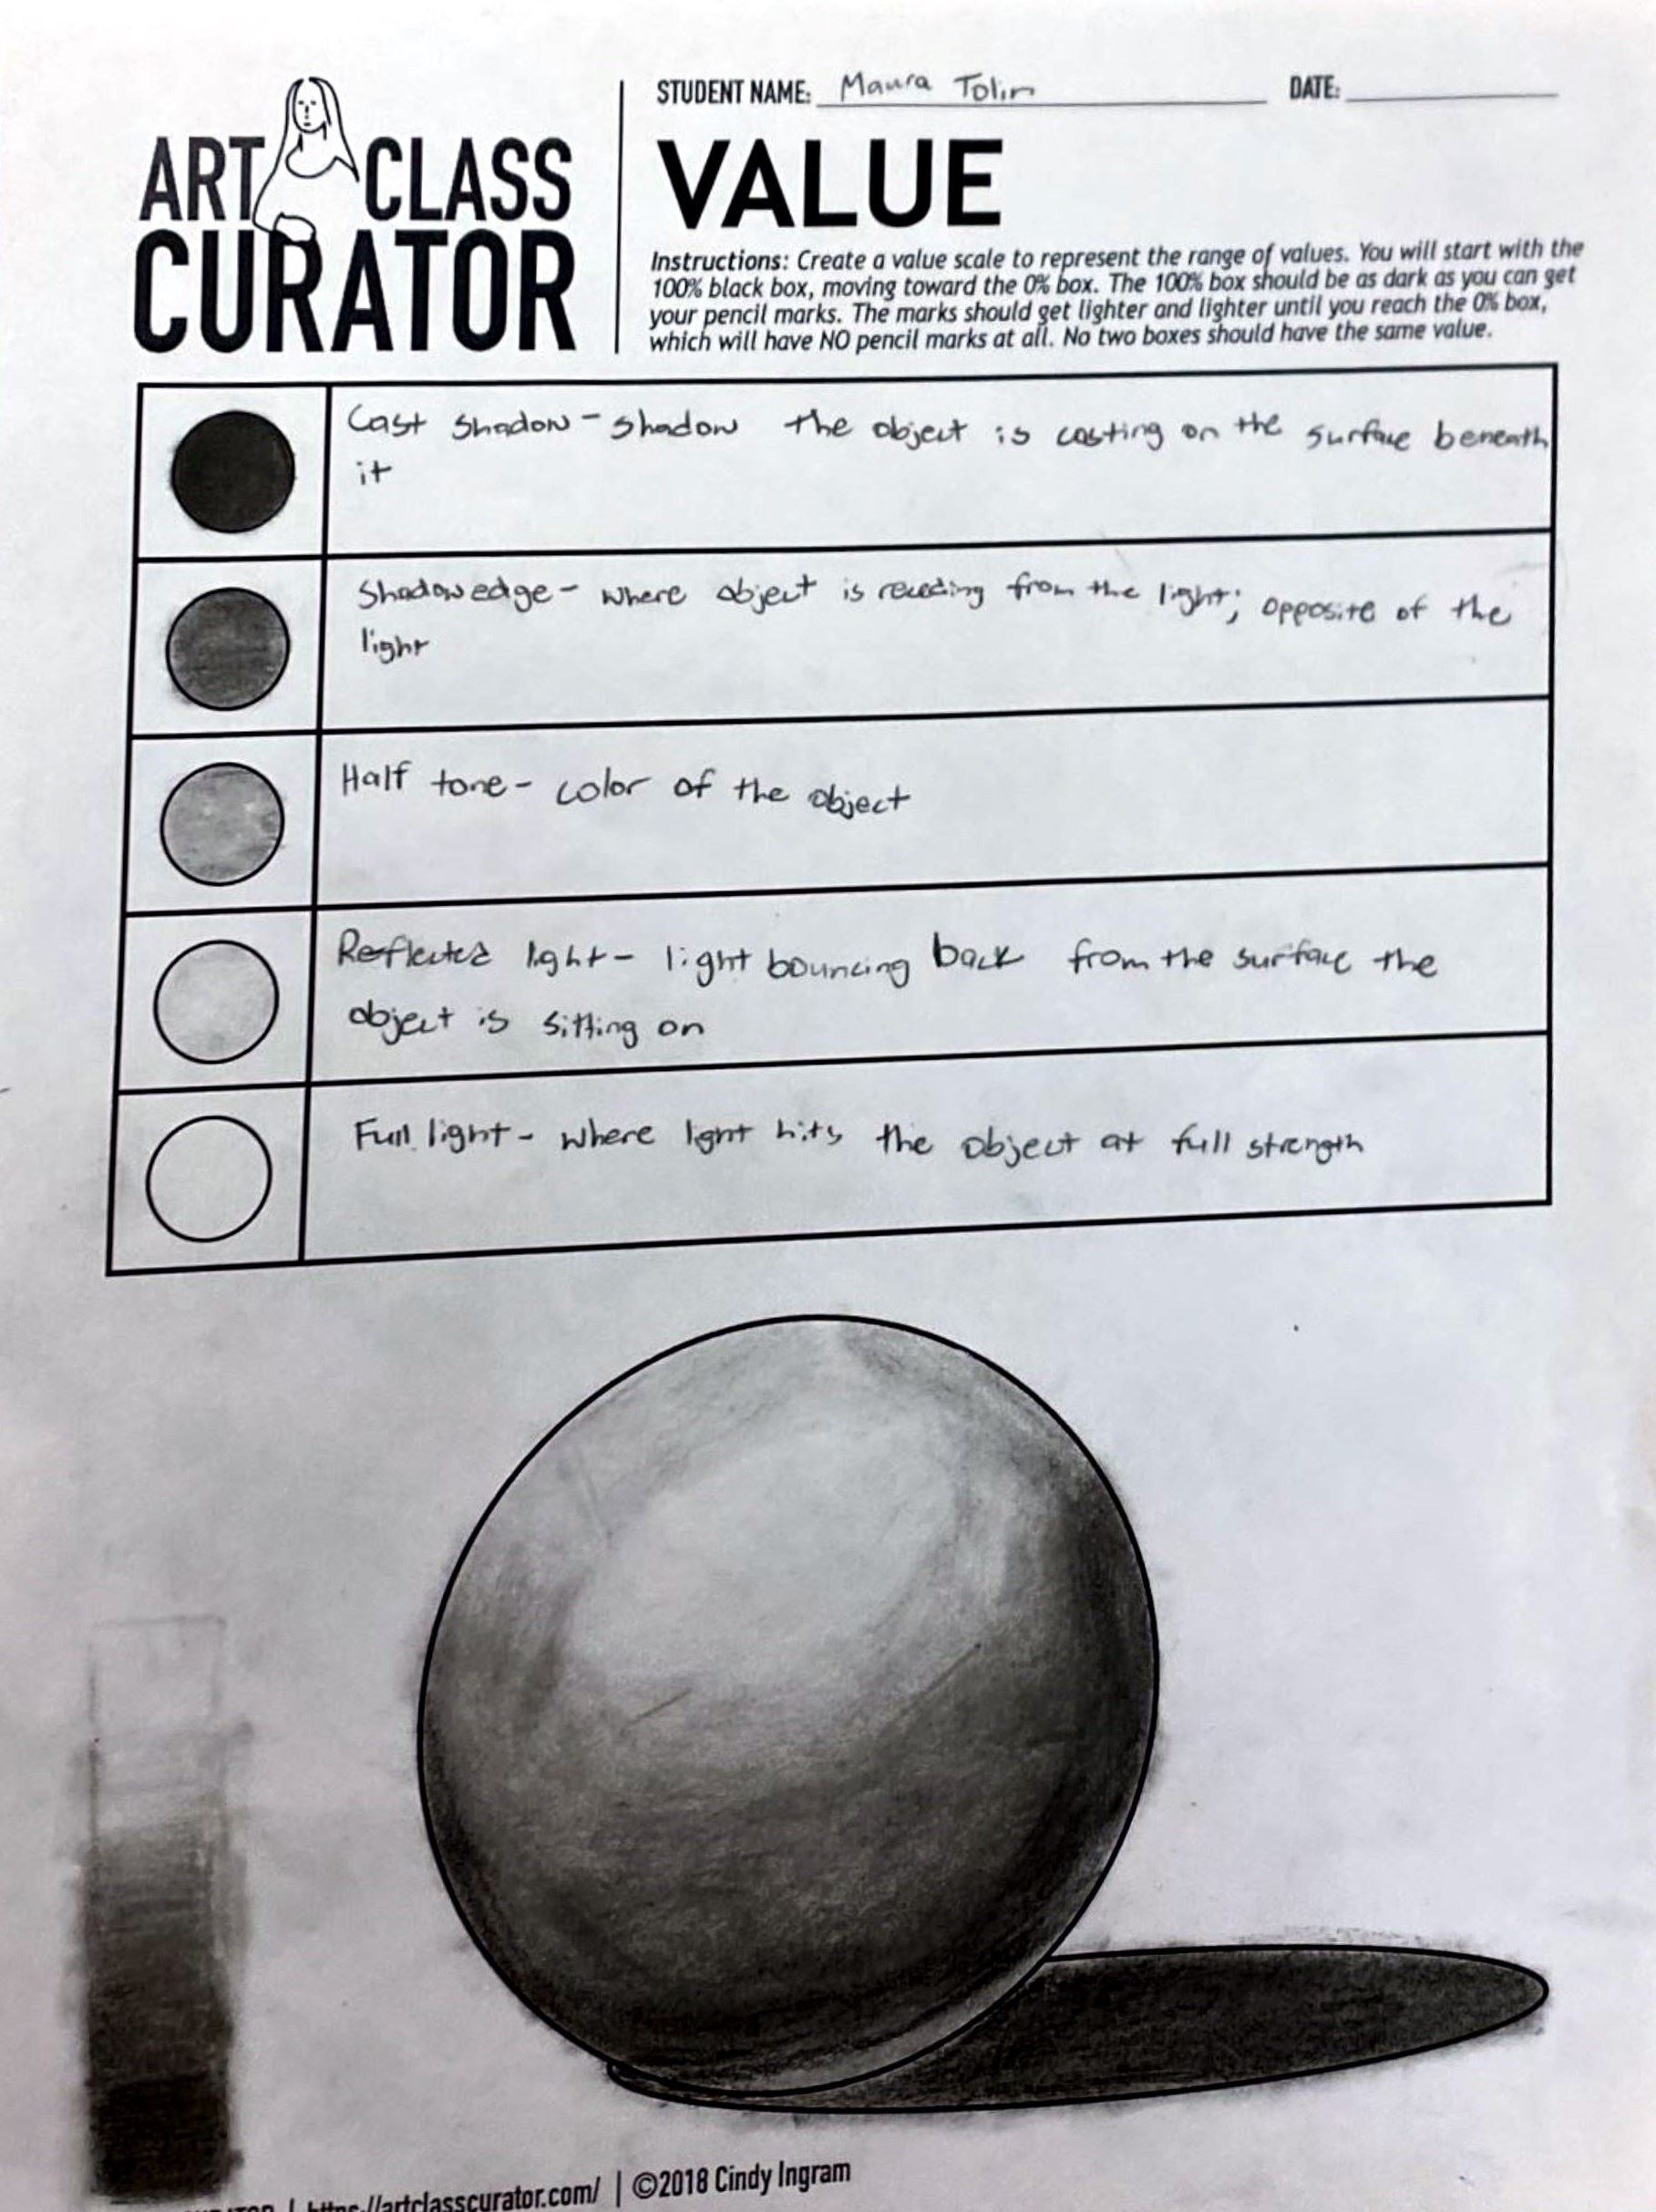 STUDENT NAME: Maura Tolin DATE:
ART CLASS
CURATOR
VALUE
Instructions: Create a value scale to represent the range of values. You will start with the
100% black box, moving toward the 0% box. The 100% box should be as dark as you can get
your pencil marks. The marks should get lighter and lighter until you reach the 0% box,
which will have NO pencil marks at all. No two boxes should have the same value.
Cast shadow - shadow the object is casting on the surface beneath
it
Shadow edge - where object is receding from the light; opposite of the
light
Half tone - color of the object
Reflected light - light bouncing back from the surface the
object is sitting on
Full light - where light hits the object at full strength
https://artclasscurator.com/ | ©2018 Cindy Ingram